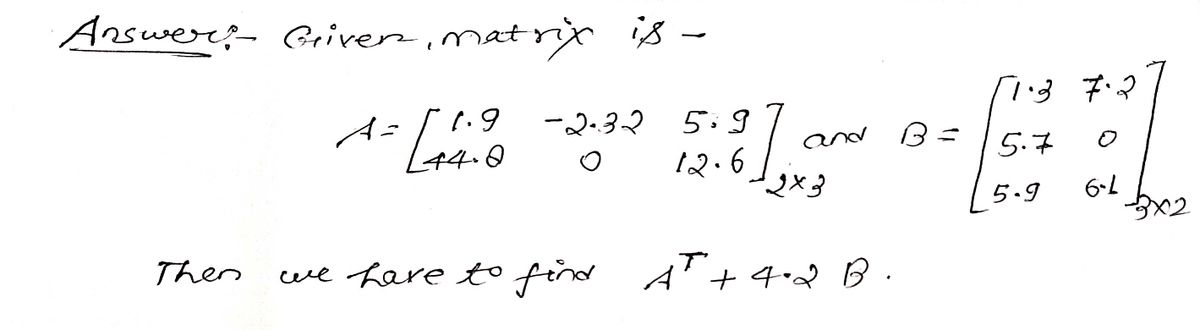 Answer:- Given, matrix is -
A = [ 1.9 -2.32 5.9
44.0 0 12.6 ]2×3 and B = [ 1.3 7.2
5.7 0
5.9 6.1 ]3×2
Then we have to find A^T + 4.2 B.